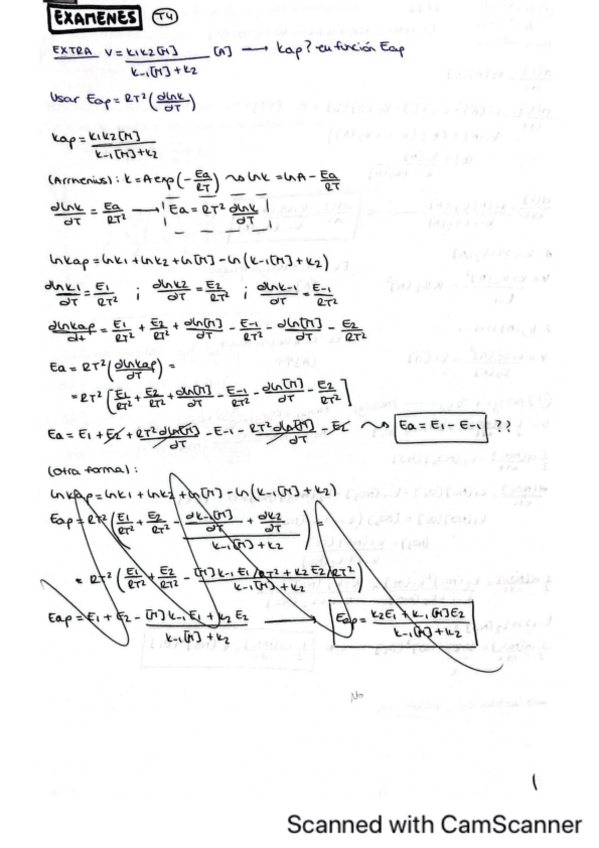 EXAMENES T4
EXTRA V = k1k2[M] / k-1[M]+k2 [A] → kap? en función Eap
Usar Eap = RT²(dlnk/dT)
kap = k1k2[M] / k-1[M]+k2
(Arrhenius): k = A exp(-Ea/RT) ~> lnk = lnA - Ea/RT
dlnk/dT = Ea/RT² → Ea = RT² dlnk/dT
lnkap = lnk1 + lnk2 + ln[M] - ln(k-1[M]+k2)
dlnk1/dT = E1/RT² ; dlnk2/dT = E2/RT² ; dlnk-1/dT = E-1/RT²
dlnkap/dt = E1/RT² + E2/RT² + dln[M]/dT - E-1/RT² - dln[M]/dT - E2/RT²
Ea = RT²(dlnkap/dT) =
= RT²[E1/RT² + E2/RT² + dln[M]/dT - E-1/RT² - dln[M]/dT - E2/RT²]
Ea = E1 + E2 + RT²dln[M]/dT - E-1 - RT²dln[M]/dT - E2 ~> Ea = E1 - E-1 ??
(otra forma):
lnkap = lnk1 + lnk2 + ln[M] - ln(k-1[M]+k2)
Eap = RT²(E1/RT² + E2/RT² - (dk-1[M]/dT + dk2/dT) / k-1[M]+k2) =
= RT²(E1/RT² + E2/RT² - [M]k-1E1/RT² + k2E2/RT² / k-1[M]+k2)
Eap = E1 + E2 - [M]k-1E1 + k2E2 / k-1[M]+k2 → Eap = k2E1 + k-1[M]E2 / k-1[M]+k2
No
1
Scanned with CamScanner